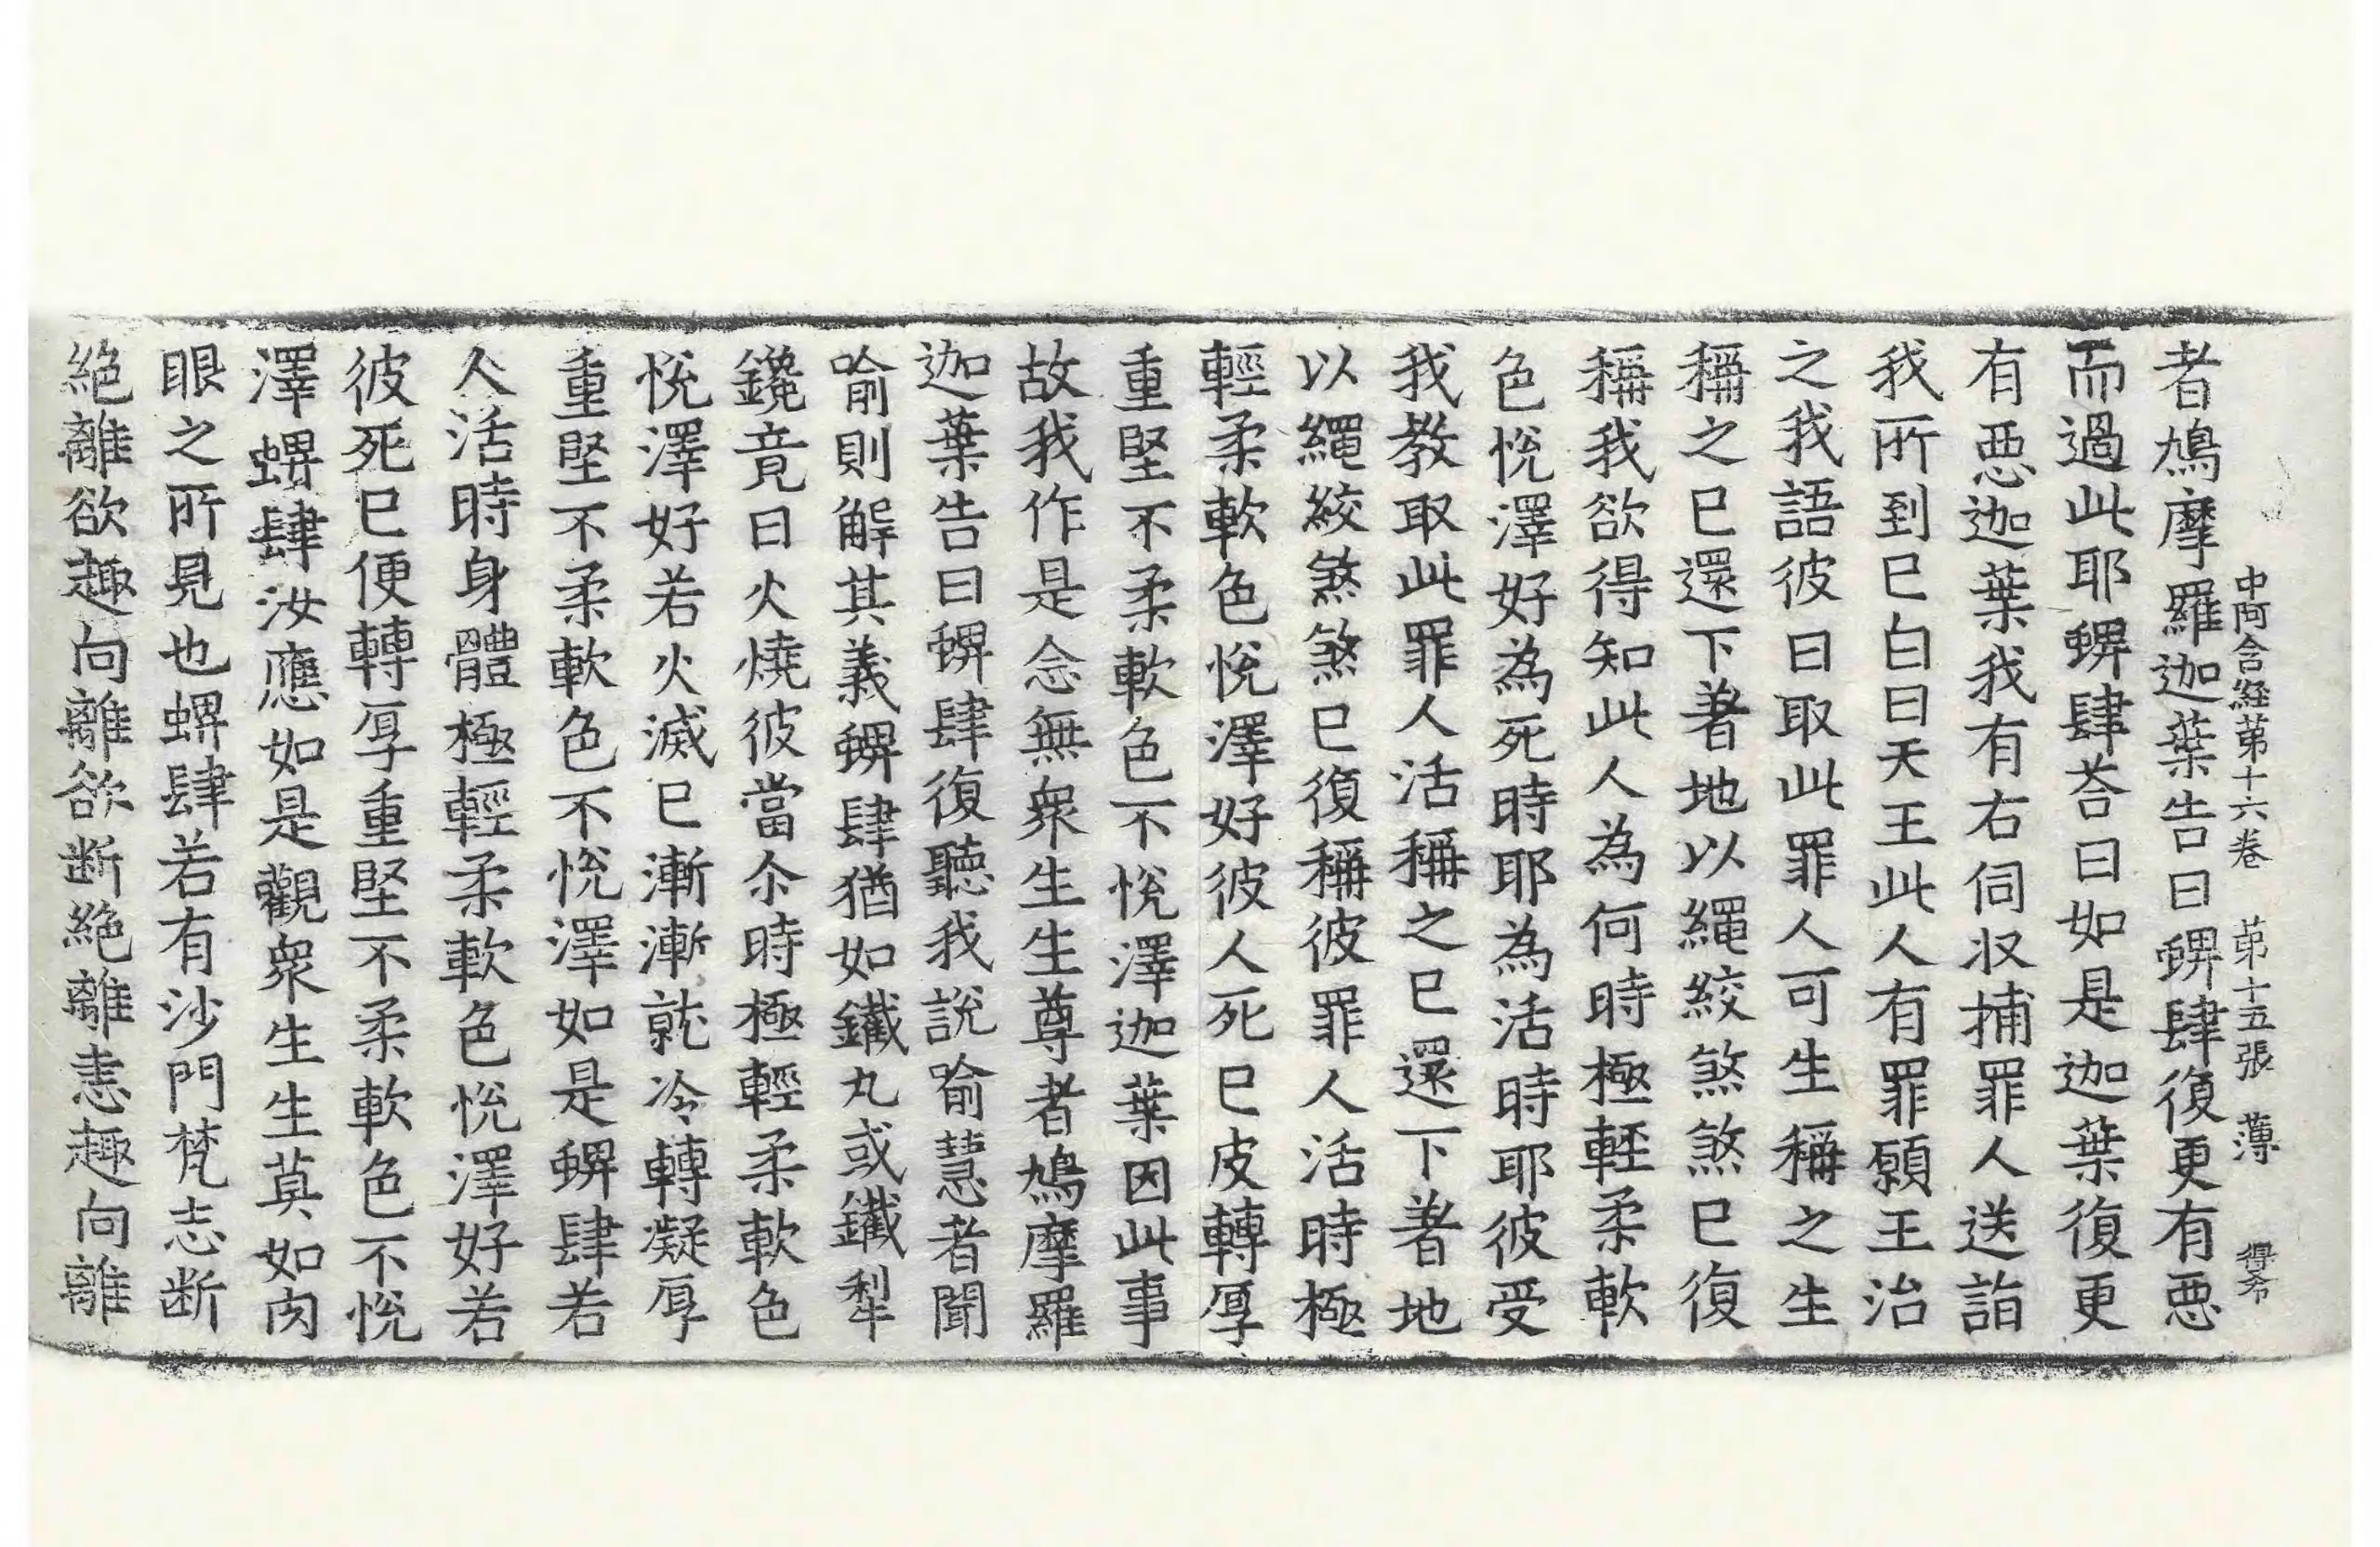 中阿含經第十六卷 第十五張 薄 得令
者鳩摩羅迦葉告曰蜱肆復更有惡
而過此耶蜱肆荅曰如是迦葉復更
有惡迦葉我有右伺収捕罪人送詣
我所到已白曰天王此人有罪願王治
之我語彼曰取此罪人可生稱之生
稱之已還下著地以繩絞煞煞已復
稱我欲得知此人為何時極輕柔軟
色悅澤好為死時耶為活時耶彼受
我教取此罪人活稱之已還下著地
以繩絞煞煞已復稱彼罪人活時極
輕柔軟色悅澤好彼人死已皮轉厚
重堅不柔軟色不悅澤迦葉因此事
故我作是念無衆生生尊者鳩摩羅
迦葉告曰蜱肆復聽我說喻慧者聞
喻則解其義蜱肆猶如鐵丸或鐵犁
鑱竟日火燒彼當尒時極輕柔軟色
悅澤好若火滅已漸漸就冷轉凝厚
重堅不柔軟色不悅澤如是蜱肆若
人活時身體極輕柔軟色悅澤好若
彼死已便轉厚重堅不柔軟色不悅
澤蜱肆汝應如是觀衆生生莫如肉
眼之所見也蜱肆若有沙門梵志断
絶離欲趣向離欲断絶離恚趣向離